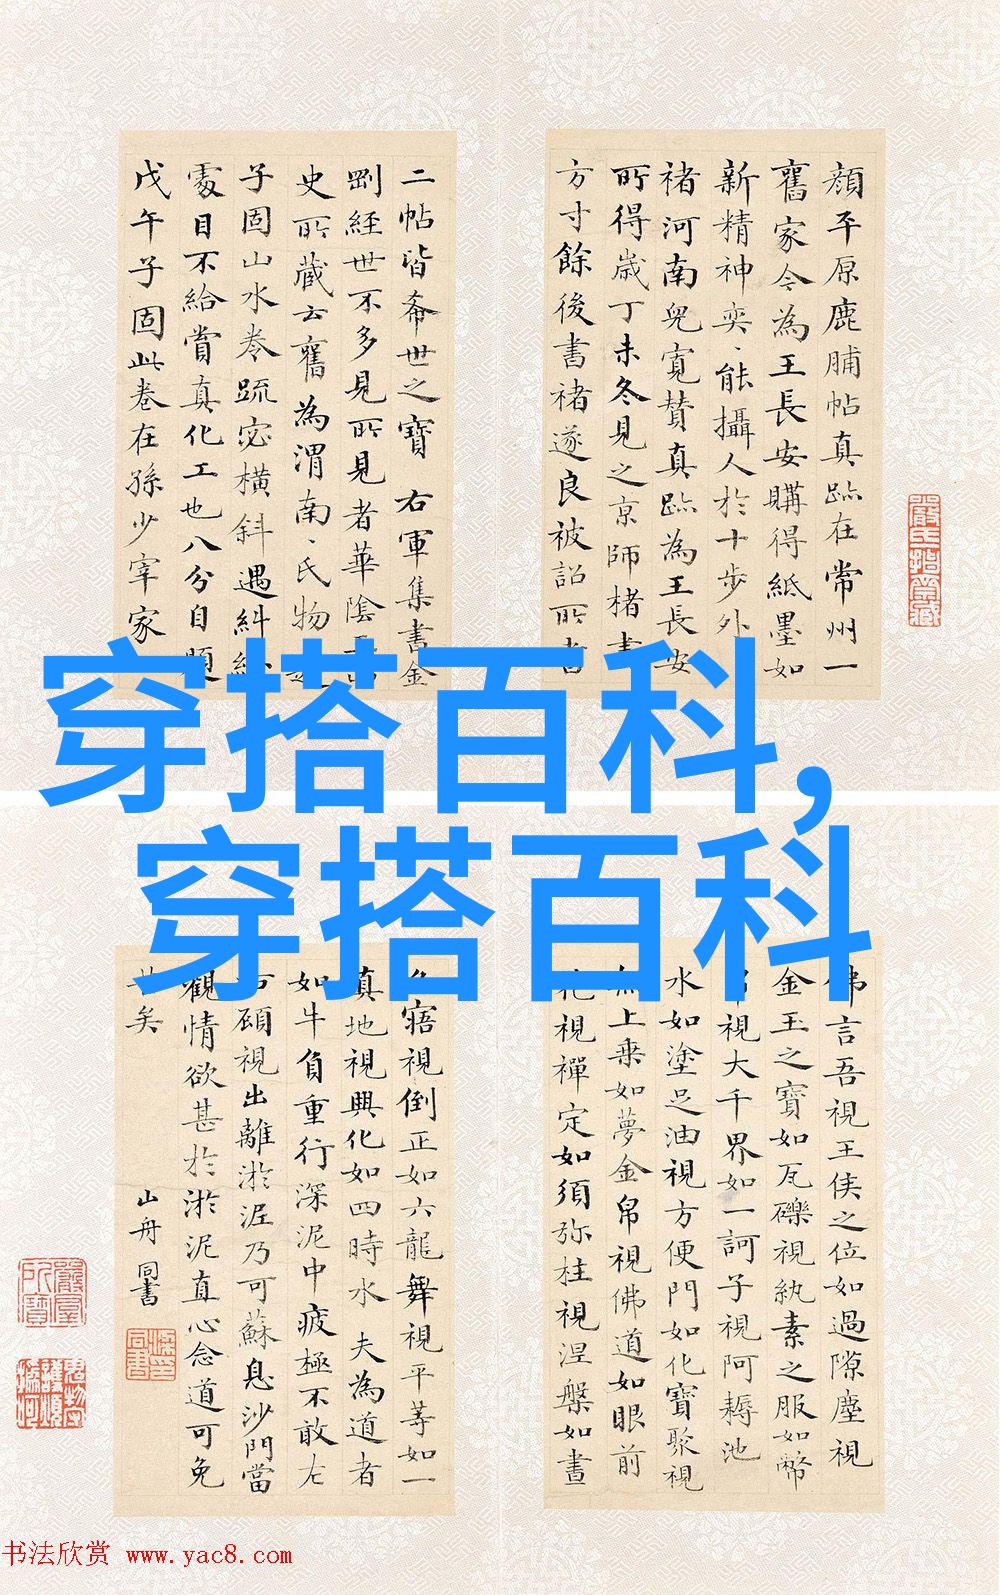 顔平原鹿脯帖真跡在常州一
舊家今為王長安購得紙墨如
新精神奕、能攝人於十步外
褚河南兒寬賛真跡為王長安
所得歲丁未冬見之京師楮書
方寸餘後書褚遂良被詔所書
二帖皆希世之寶 右軍集書金
剛經世不多見所見者華陰
史所藏云舊為渭南、氏物
子固山水卷疏宓橫斜遇糾紛
處目不給賞真化工也八分自題
戊午子固此卷在孫少宰家
穿搭百科,
穿搭百科
佛言吾視王侯之位如過隙塵視
金玉之寶如瓦礫視紈素之服如幣
視大千界如一訶子視阿耨池
水如塗足油視方便門如化寶聚視
無上乗如夢金帛視佛道如眼前
花視禪定如須弥柱視涅槃如晝
夕寤視倒正如六龍舞視平等如一
真地視興化如四時水 夫為道者
如牛負重行深泥中疲極不敢左
右顧視出離淤泥乃可蘇息沙門當
觀情欲甚於淤泥直心念道可免
苦矣 山舟 同書
书法欣赏 www.yac8.com